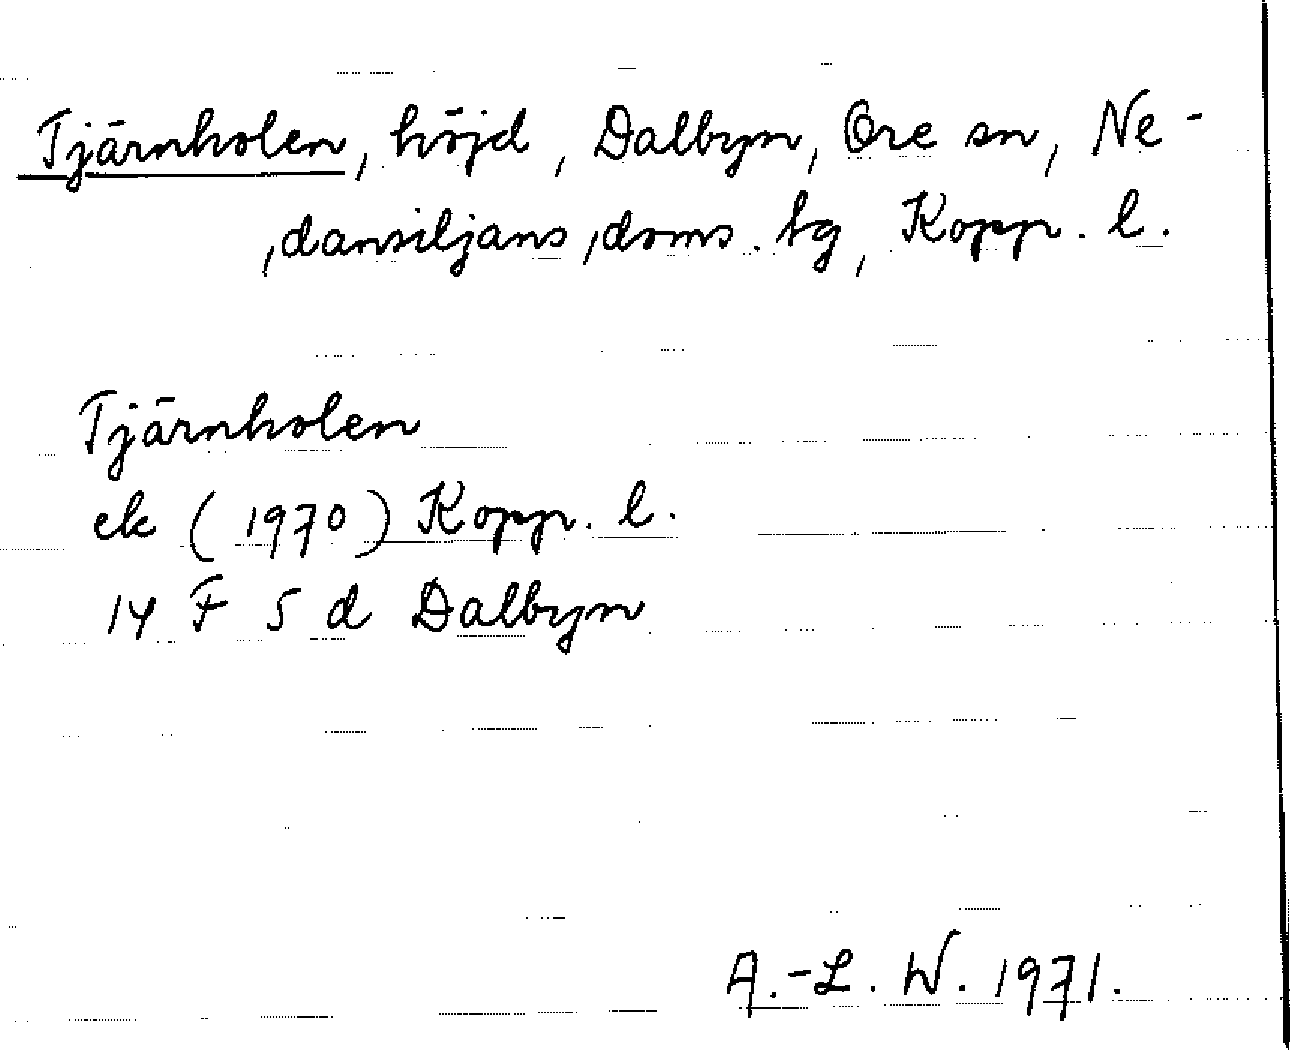 Tjärnholen, höjd, Dalbyn, Ore sn, Ne-
dansiljans doms. tg, Kopp. l.
Tjärnholen
ek (1970) Kopp. l.
14 F 5 d Dalbyn
A.-L. W. 1971.